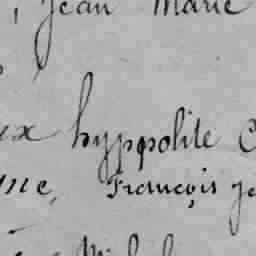 , Jean Marie
ux hyppolite
me, François Je